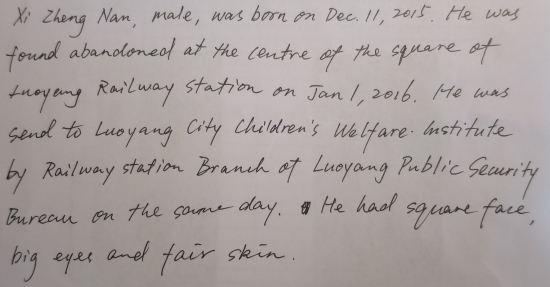 Xi Zheng Nan, male, was born on Dec. 11, 2015. He was
found abandoned at the centre of the square of
Luoyang Railway Station on Jan 1, 2016. He was
send to Luoyang City Children's Welfare Institute
by Railway station Branch of Luoyang Public Security
Bureau on the same day. He had square face,
big eyes and fair skin.